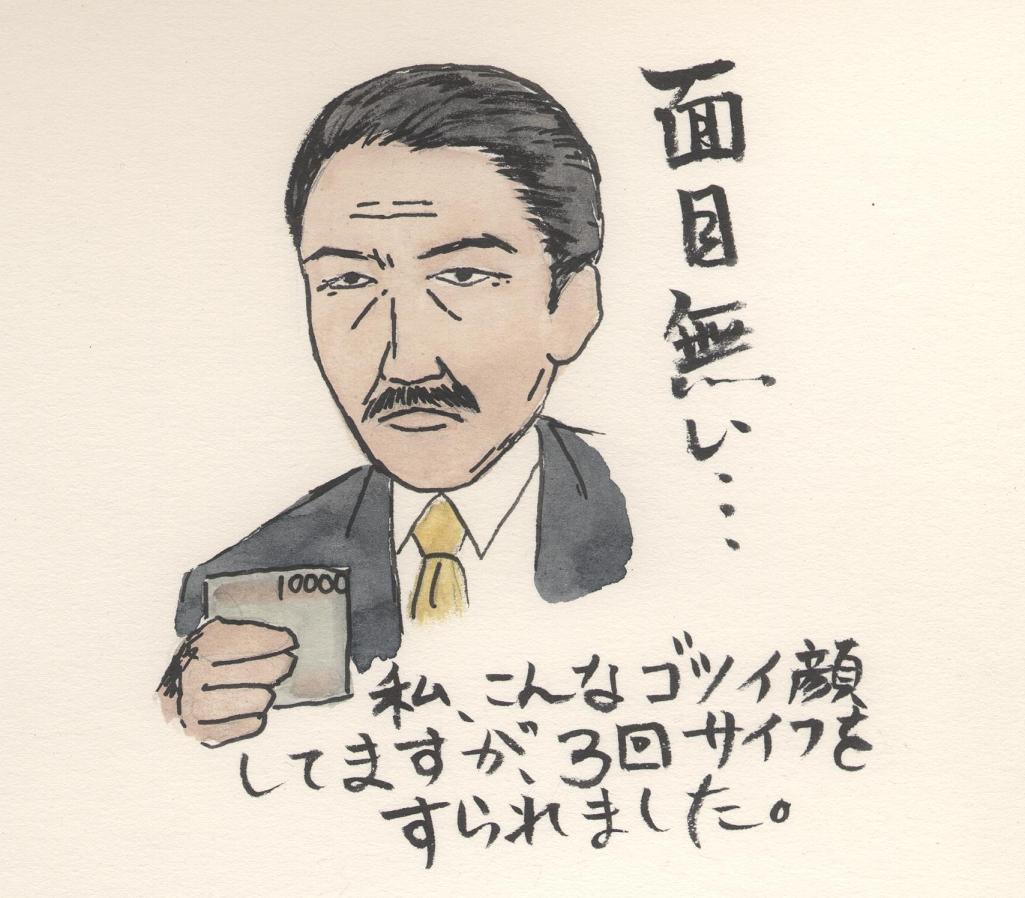 面目無い…
10000
私、こんなゴツイ顔
してますが、3回サイフを
すられました。